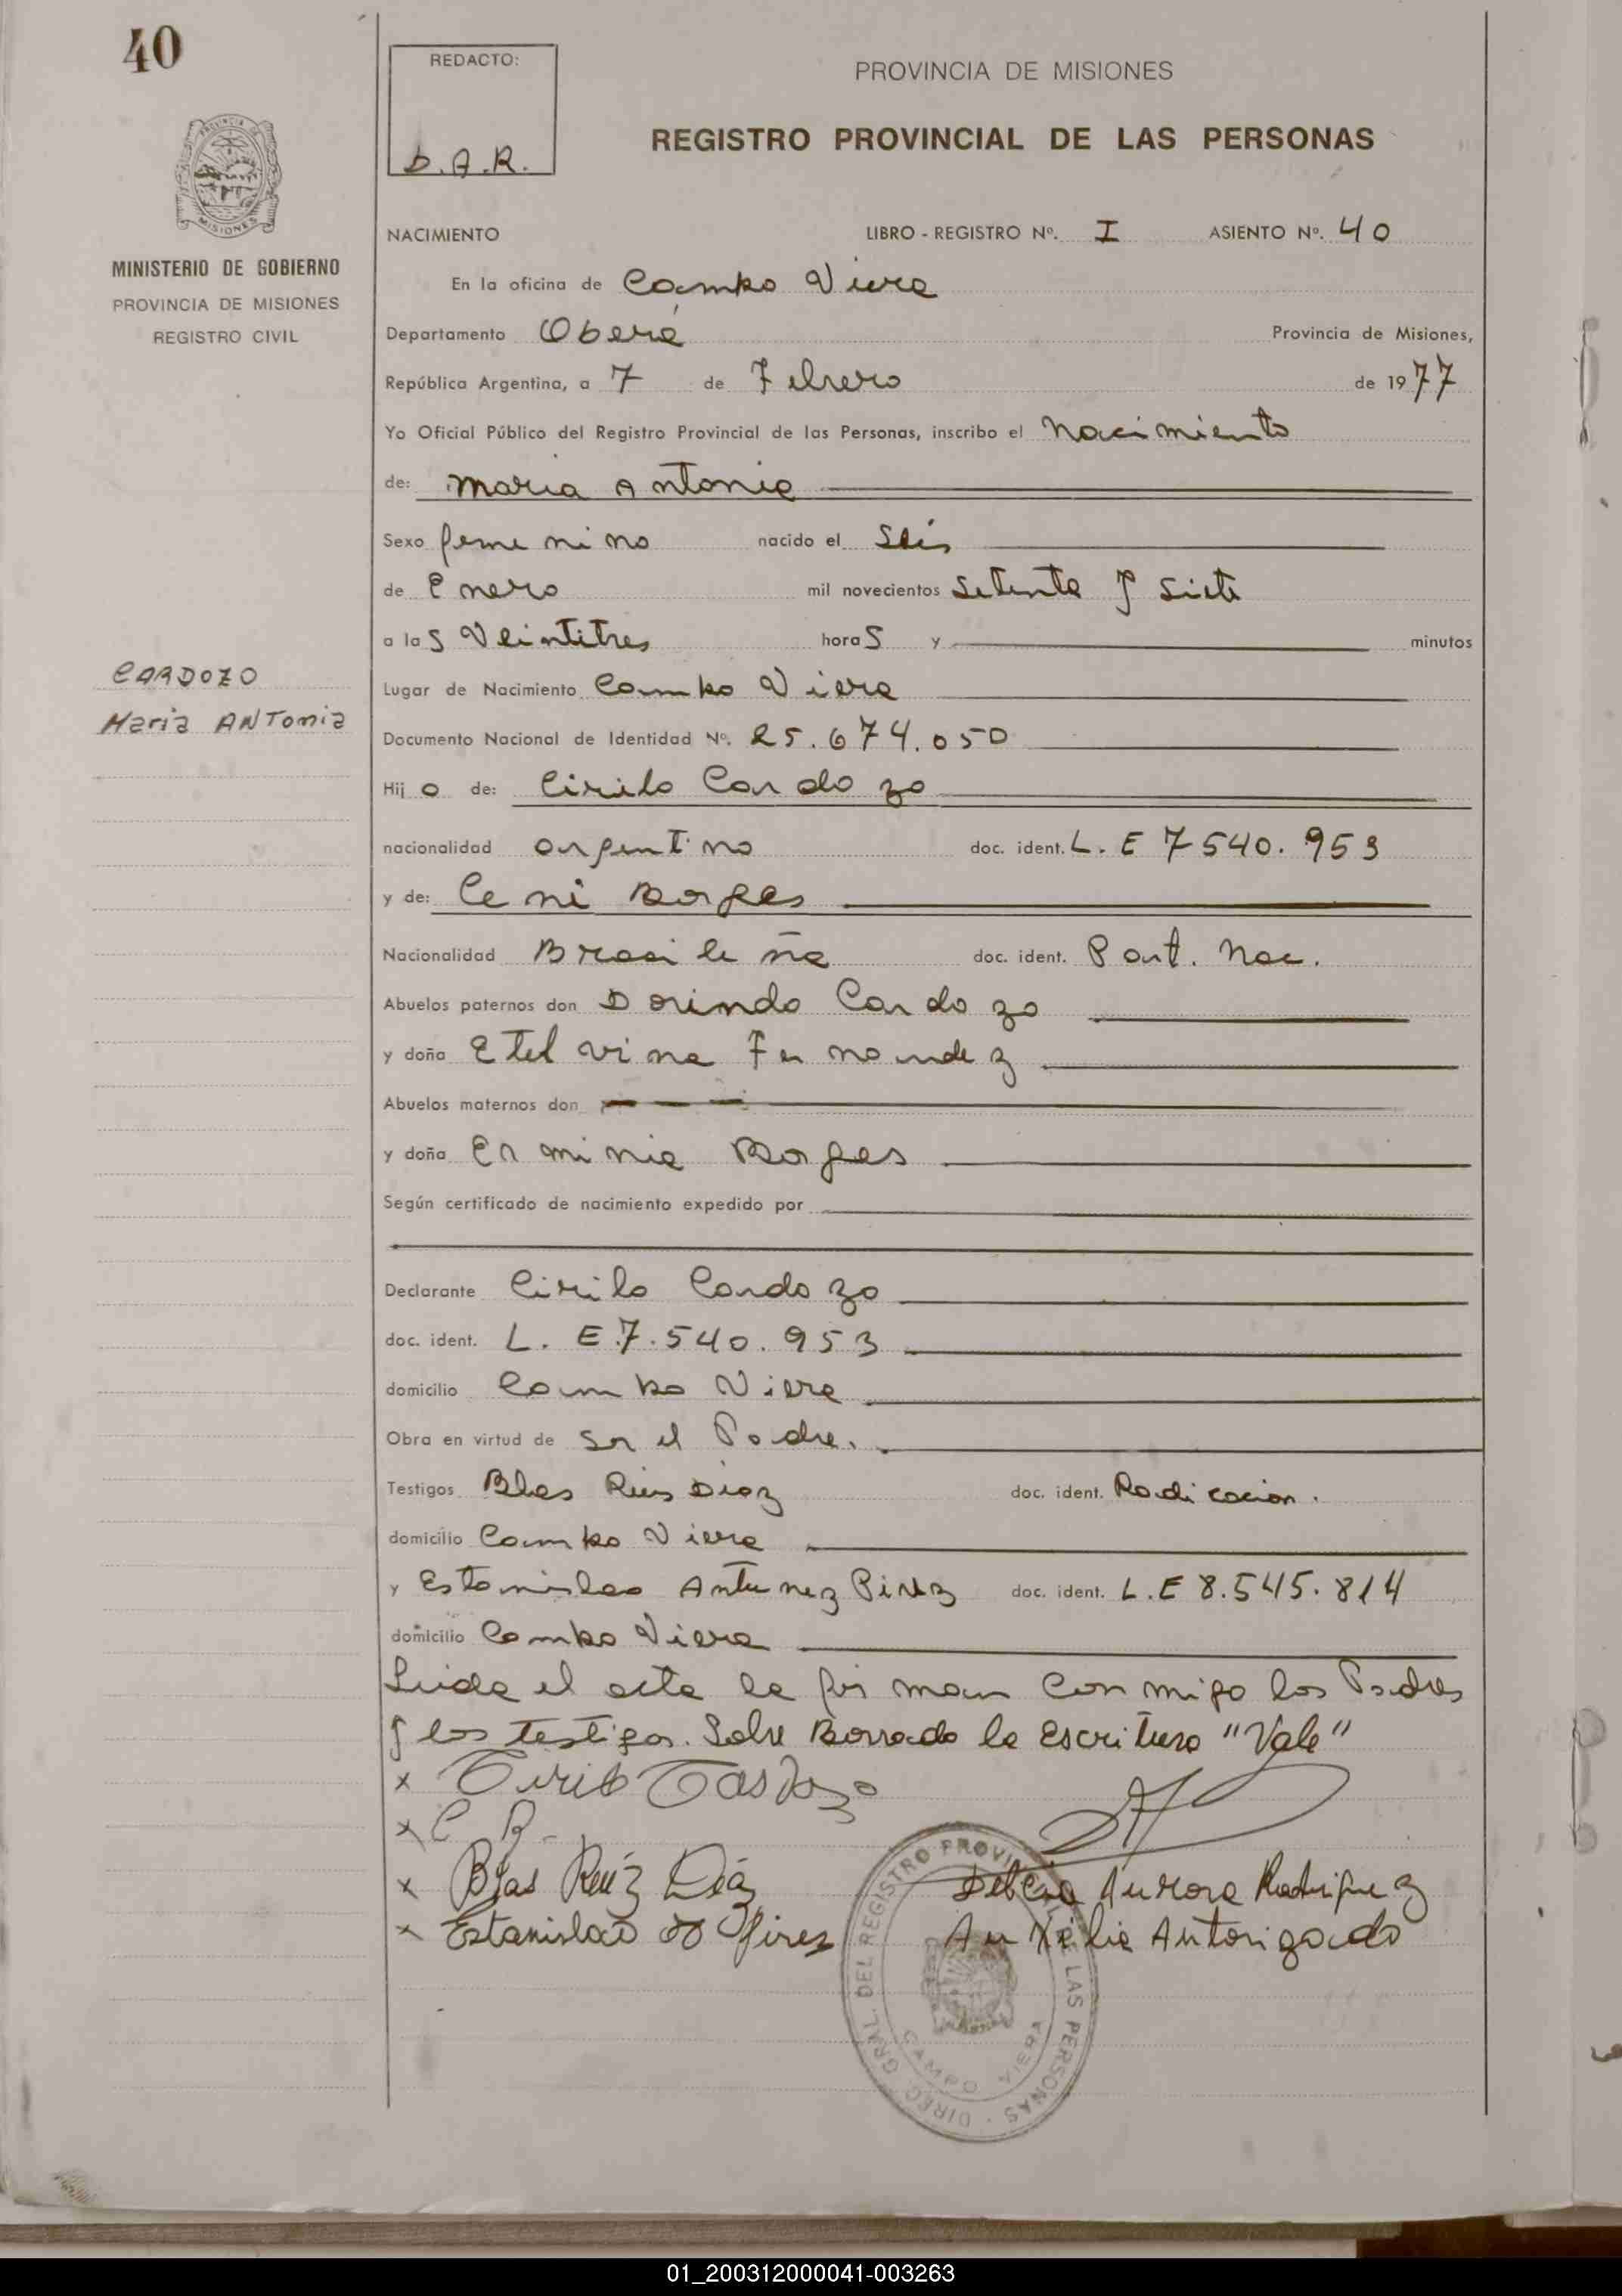 40
PROVINCIA DE
MISIONES
MINISTERIO DE GOBIERNO
PROVINCIA DE MISIONES
REGISTRO CIVIL
CARDOZO
Maria ANTonia
REDACTO:
D.A.R.
PROVINCIA DE MISIONES
REGISTRO PROVINCIAL DE LAS PERSONAS
NACIMIENTO LIBRO - REGISTRO Nº. I ASIENTO Nº. 40
En la oficina de Campo Viera
Departamento Oberá Provincia de Misiones,
República Argentina, a 7 de Febrero de 1977
Yo Oficial Público del Registro Provincial de las Personas, inscribo el Nacimiento
de: Maria Antonia
Sexo femenino nacido el Seis
de Enero mil novecientos Setenta y Siete
a las Veintitres horas y minutos
Lugar de Nacimiento Campo Viera
Documento Nacional de Identidad Nº. 25.674.050
Hijo de: Cirilo Cardozo
nacionalidad argentino doc. ident. L. E 7540.953
y de: Ceni Borges
Nacionalidad Brasileña doc. ident. Part. Nac.
Abuelos paternos don Dorindo Cardozo
y doña Etelvina Fernandez
Abuelos maternos don
y doña Erminia Borges
Según certificado de nacimiento expedido por
Declarante Cirilo Cardozo
doc. ident. L. E 7.540.953
domicilio Campo Viera
Obra en virtud de ser el Padre.
Testigos Blas Ruis Diaz doc. ident. Radicacion.
domicilio Campo Viera
y Estanislao Antunez Pirez doc. ident. L.E 8.545.814
domicilio Campo Viera
Leida el acta la firman conmigo los Padres
y los testigos. Sobre Borrado la escritura "Vale"
x Cirilo Cardozo
x C B
x Blas Ruiz Diaz
x Estanislao Pires
Delcia Aurora Rodriguez
Auxilia Autorizado
DIREC. GRAL. DEL REGISTRO PROVINCIAL DE LAS PERSONAS
CAMPO VIERA
01_200312000041-003263